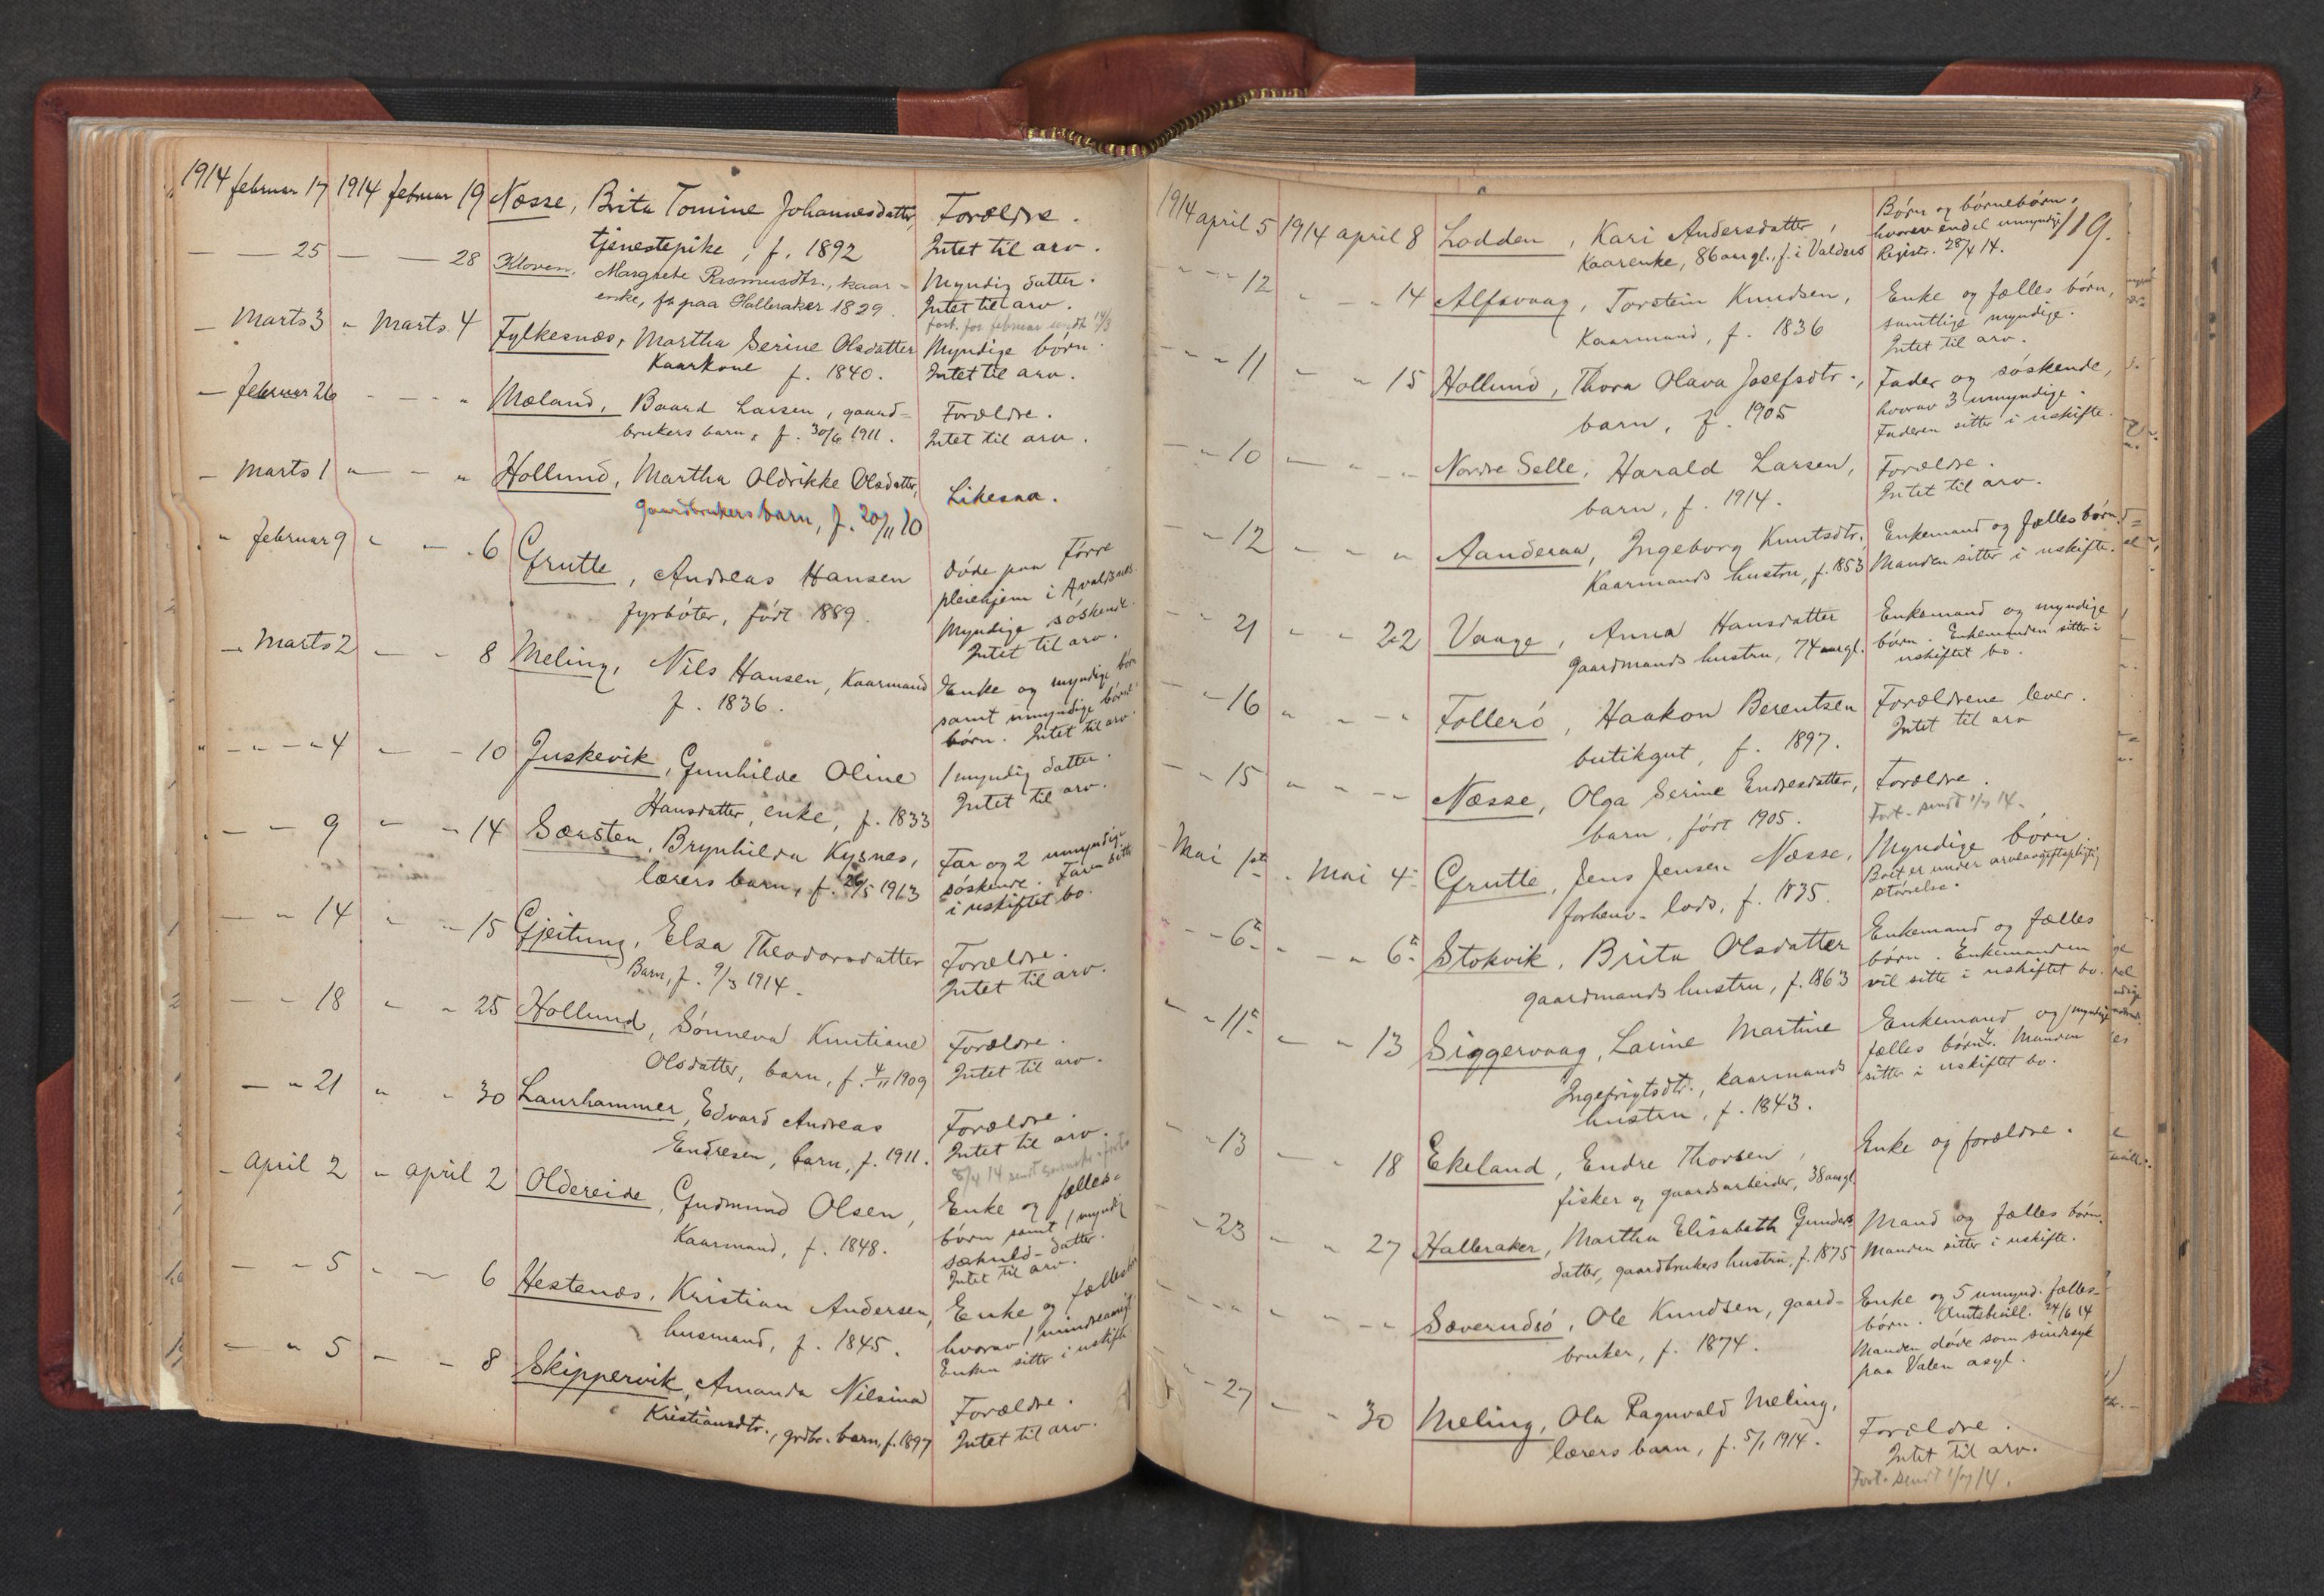 1914 februar 17 1914 februar 19 Næsse, Brita Tomine Johannesdatter, Forældre.
tjenestepike, f. 1892 Intet til arv.
— — 25 — — 28 Kloven, Margrete Rasmusdtr., kaar- Myndig datter.
enke, f. paa Halleraker 1829. Intet til arv.
fort. for februar sendt 14/3
— Marts 3 " Marts 4 Fylkesnæs, Martha Serine Olsdatter Myndige børn.
Kaarkone f. 1840. Intet til arv.
— februar 26 - - - " Mæland, Baard Larsen, gaard= Forældre.
brukers barn, f. 30/6 1911. Intet til arv.
— Marts 1 " — - " Hollund, Martha Oldrikke Olsdatter, Likesaa.
gaardbrukers barn, f. 20/11 10
" februar 9 " — - 6 Grutle, Andreas Hansen døde paa Førre
fyrbøter, født 1889. pleiehjem i Avaldsnes.
Myndige søskende.
Intet til arv.
— Marts 2 — - - 8 Meling, Nils Hansen, Kaarmand Enke og myndige børn
f. 1836. samt umyndige børne
børn. Intet til arv.
" - " - " 4 — - 10 Juskevik, Gunhilde Oline 1 myndig datter.
Hansdatter, enke, f. 1833 Intet til arv.
— — 9 " - 14 Særsten, Brynhilda Kysnes, Far og 2 umyndige
lærers barn, f. 26/5 1913 søskende. Faren sitter
i uskiftet bo.
— " 14 " - 15 Gjeitung, Elsa Theodorsdatter Forældre.
Barn, f. 9/3 1914. Intet til arv.
— - 18 " " 25 Hollund, Sønneva Knutiane Forældre.
Olsdatter, barn, f. 4/11 1909 Intet til arv.
— " 21 " - 30 Laurhammer, Edvard Andreas Forældre.
Endresen, barn, f. 1911. Intet til arv.
8/4 14 sendt
— April 2 " april 2 Oldereide, Gudmund Olsen, Enke og fælles=
Kaarmand, f. 1848. børn samt 1 myndig
datter.
Intet til arv.
— " 5 " — 6 Hestenæs, Kristian Andersen, Enke og fællesbørn
husmand, f. 1845. hvorav 1 mindreaarig.
Enken sitter i uskifte
— " 5 — - 8 Skippervik, Amanda Nilsina Forældre.
Kristiansdtr., grdbr. barn, f. 1897 Intet til arv.
119.
1914 april 5 1914 april 8 Lodden, Kari Andersdatter, Børn og børnebørn,
Kaarenke, 86 aar gl., f. i Valders hvorav endel umyndige
Registr. 28/4 14.
" - - 12 " - " 14 Alfsvaag, Torstein Knudsen, Enke og fælles børn,
Kaarmand, f. 1836 samtlige myndige.
Intet til arv.
— - " 11 — " 15 Hollund, Thora Olava Josefsdtr., Fader og søskende,
barn, f. 1905 hvorav 3 umyndige.
Faderen sitter i uskifte.
— - 10 — " - Nordre Selle, Harald Larsen, Forældre.
barn, f. 1914. Intet til arv.
— - 12 — - " Aanderaa, Ingeborg Knutsdtr., Enkemand og fælles børn.
Kaarmands hustru, f. 1853 Manden sitter i uskifte.
— - 21 " " 22 Vaage, Anna Hansdatter Enkemand og myndige
gaardmands hustru, 74 aar gl. børn. Enkemanden sitter i
uskiftet bo.
— - 16 " - - " Follerø, Haakon Berentsen Forældrene lever.
butikgut, f. 1897. Intet til arv
— - 15 " " - - Næsse, Olga Serine Endresdatter, Forældre.
barn, født 1905. Fort. sendt 1/5 14.
Mai 1ste " Mai 4de Grutle, Jens Jensen Næsse, Myndige børn.
forhenv. lods, f. 1835. Boet er under arveavgiftspligtig
størrelse.
— - 6te — " 6te Stokvik, Brita Olsdatter Enkemand og fælles
gaardmands hustru, f. 1863 børn. Enkemanden
vil sitte i uskiftet bo.
" - 11te — " 13 Siggervaag, Larine Martine Enkemand og myndige
Ingefrigtsdtr., kaarmands fælles børn. Manden
hustru, f. 1843. sitter i uskiftet bo.
— - 13 — - 18 Ekeland, Endre Thorsen, Enke og forældre.
fisker og gaardsarbeider, 38 aar gl.
— - 23 — " 27 Halleraker, Martha Elisabeth Gunders Mand og fælles børn.
datter, gaardbrukers hustru, f. 1875 Manden sitter i uskifte.
- - - - " - - - Sæverudsø, Ole Knudsen, gaard= Enke og 5 umynd. fælles=
bruker, f. 1874. børn. Amtsbevill. 24/6 14
Manden døde som sindssyk
paa Valen asyl.
" - 27 — - 30 Meling, Ola Ragnvald Meling, Forældre.
lærers barn, f. 5/1 1914. Intet til arv.
Fort. sendt 1/7 14.